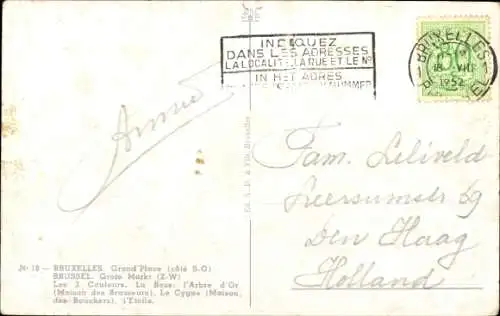 INDIQUEZ
DANS LES ADRESSES
LA LOCALITE, LA RUE ET LE No
IN HET ADRES
NUMMER
BRUXELLES
VIII
1952
Fam. Leliveld
69
Den Haag
Holland
No 18 — BRUXELLES. Grand'Place (côté S-O)
BRUSSEL. Grote Markt (Z-W)
Les 3 Couleurs. La Rose: l'Arbre d'Or
(Maison des Brasseurs). Le Cygne (Maison
des Bouchers). l'Etoile.